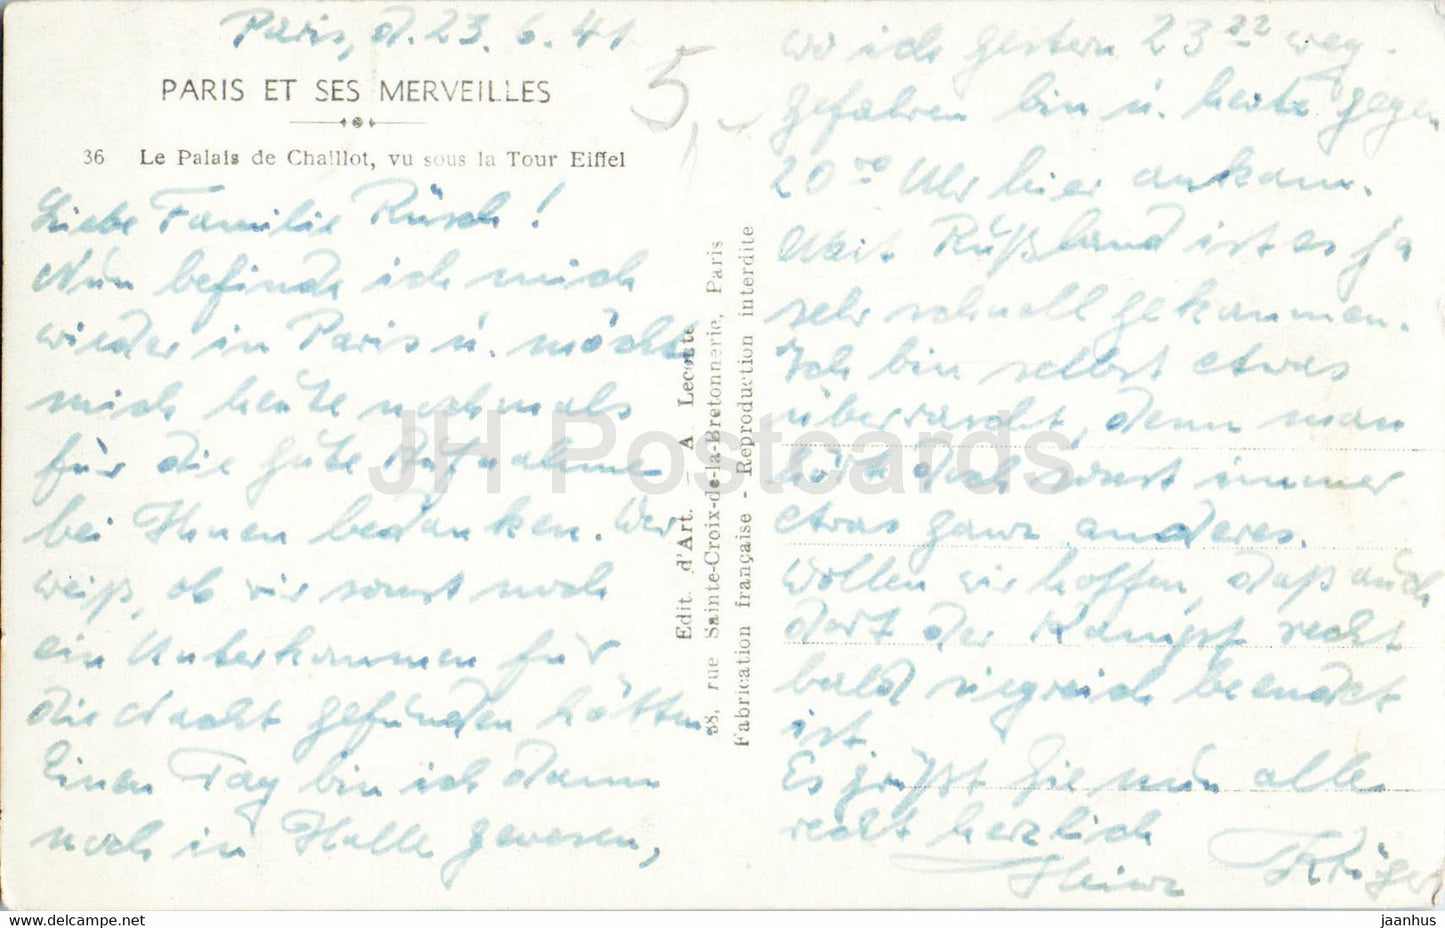 Paris, d. 23. 6. 41
PARIS ET SES MERVEILLES
36 Le Palais de Chaillot, vu sous la Tour Eiffel
Liebe Familie Rüsch!
Nun befinde ich mich
wieder in Paris u. möchte
mich heute nochmals
für die gute Aufnahme
bei Ihnen bedanken. Wer
weiß, ob wir sonst noch
ein Unterkommen für
die Nacht gefunden hätten.
Einen Tag bin ich dann
noch in Halle gewesen,
5,-
Edit. d'Art. - A Leconte
38, rue Sainte-Croix-de-la-Bretonnerie, Paris
Fabrication française - Reproduction interdite
wo ich gestern 23 22 weg-
gefahren bin u. heute gegen
20 00 Uhr hier ankam.
Mit Rußland ist es ja
sehr schnell gekommen.
Ich bin selbst etwas
überrascht, denn man
hört doch sonst immer
etwas ganz anderes.
Wollen wir hoffen, daß auch
dort der Kampf recht
bald siegreich beendet
ist.
Es grüßt Sie nun alle
recht herzlich
Heinz Krüger
JH Postcards
www.delcampe.net
jaanhus